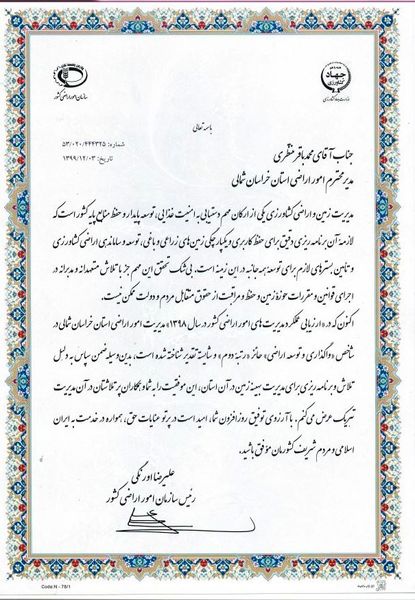 باسمه تعالی
جهاد
کشاورزی
وزارت جهاد کشاورزی
سازمان امور اراضی کشور
شماره: ۵۳/۰۲۰/۴۴۴۳۲۵
تاریخ: ۱۳۹۹/۱۲/۰۳
جناب آقای محمدباقر منظری
مدیر محترم امور اراضی استان خراسان شمالی
مدیریت زمین و اراضی کشاورزی یکی از ارکان مهم دستیابی به امنیت غذایی، توسعه پایدار و حفظ منابع پایه کشور است که
لازمه آن برنامه ریزی دقیق برای حفظ کاربری و یکپارچگی زمین های زراعی و باغی، توسعه و ساماندهی اراضی کشاورزی
و تأمین بسترهای لازم برای توسعه همه جانبه در این زمینه است. بی شک تحقق این مهم جز با تلاش متعهدانه و مدبرانه در
اجرای قوانین و مقررات حوزه زمین و حفظ و مراقبت از حقوق متقابل مردم و دولت ممکن نیست.
اکنون که در «ارزیابی عملکرد مدیریت های امور اراضی کشور در سال ۱۳۹۸» مدیریت امور اراضی استان خراسان شمالی در
شاخص «واگذاری و توسعه اراضی» حائز «رتبه دوم» و شایسته تقدیر شناخته شده است، بدین وسیله ضمن سپاس به دلیل
تلاش و برنامه ریزی برای مدیریت بهینه زمین در آن استان، این موفقیت را به شما و همکاران پر تلاشتان در آن مدیریت
تبریک عرض می کنم. با آرزوی توفیق روزافزون شما، امید است در پرتو عنایات حق، همواره در خدمت به ایران
اسلامی و مردم شریف کشورمان موفق باشید.
علیرضا اورنگی
رئیس سازمان امور اراضی کشور
Code:N - 78/1